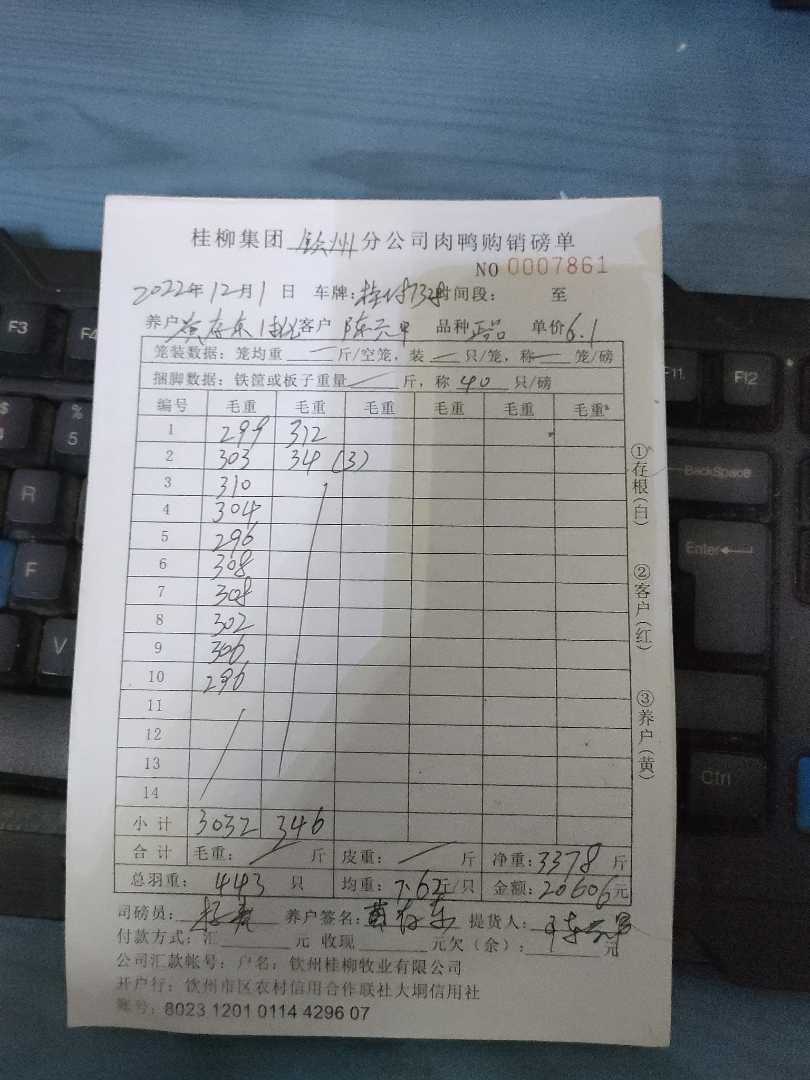 桂柳集团 钦州 分公司肉鸭购销磅单
NO 0007861
2022年12月1日 车牌: 时间段: 至
养户 客户 陈 品种 单价6.1
笼装数据：笼均重 斤/空笼，装 只/笼，称 笼/磅
捆脚数据：铁筐或板子重量 斤，称 40 只/磅
编号 毛重 毛重 毛重 毛重 毛重 毛重
1 299 312
2 303 34 (3)
3 310
4 304
5 296
6 308
7 308
8 302
9 306
10 296
11
12
13
14
小计 3032 346
合计 毛重： 斤 皮重： 斤 净重：3378 斤
总羽重： 443 只 均重：7.62斤/只 金额：20606元
司磅员： 养户签名：黄存东 提货人：
付款方式：汇 元 收现 元欠（余）： 元
公司汇款帐号：户名：钦州桂柳牧业有限公司
开户行：钦州市区农村信用合作联社大垌信用社
账号：8023 1201 0114 4296 07
①存根(白)
②客户(红)
③养户(黄)
F3
$
4
%
5
R
F
V
F11
F12
BackSpace
Enter
Ctrl